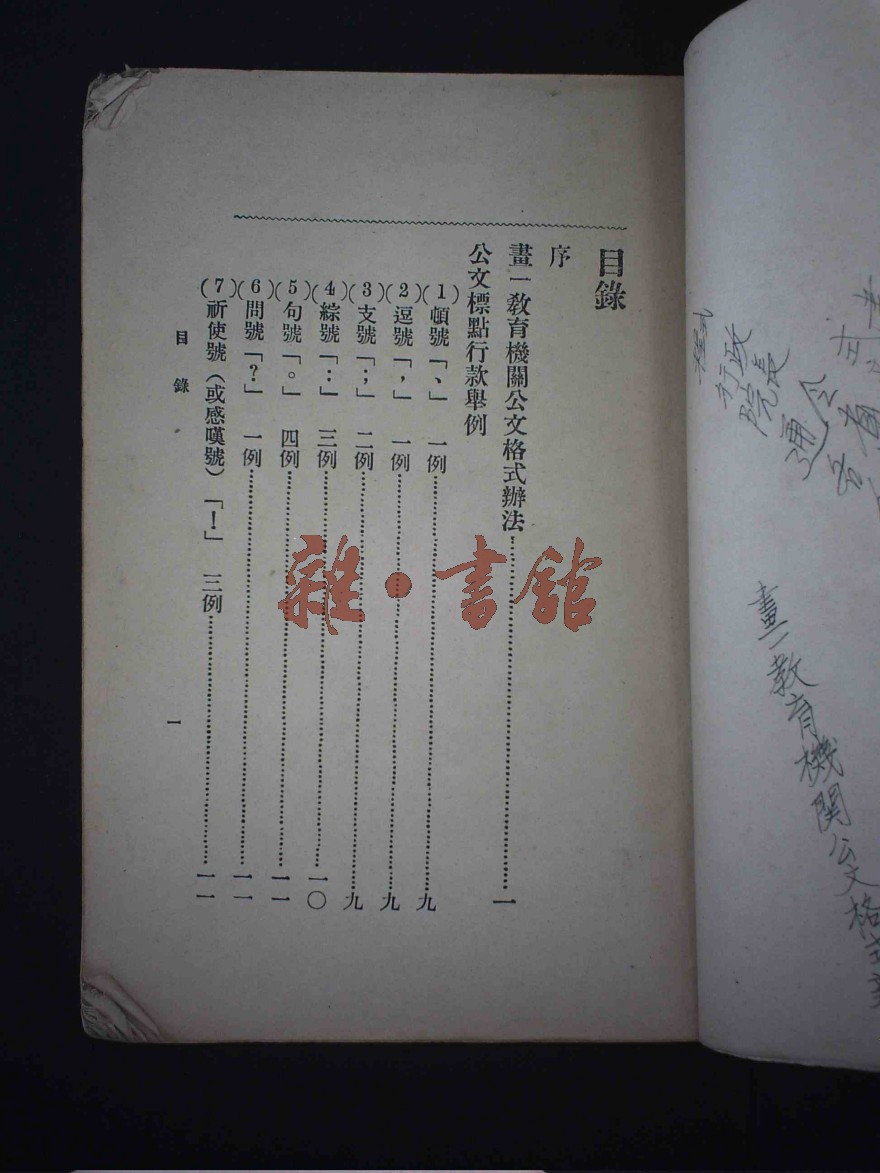 目錄
序
畫一教育機關公文格式辦法……一
公文標點行款舉例
(1)頓號「、」 一例……九
(2)逗號「，」 一例……九
(3)支號「；」 二例……九
(4)綜號「：」 三例……一〇
(5)句號「。」 四例……一一
(6)問號「？」 一例……一一
(7)祈使號（或感嘆號）「！」 三例……一一
目錄
一
雜·書館
通令
行政
院長
程式
畫一教育機關公文格式